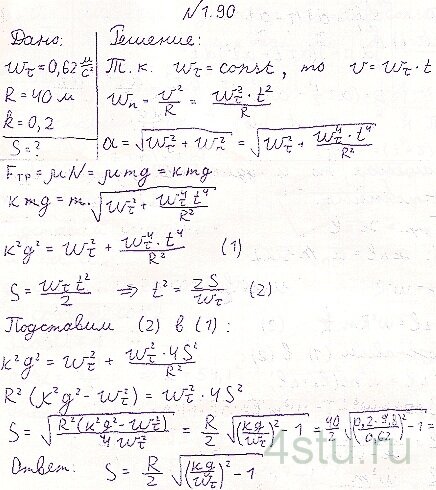 №1.90
Дано: Решение:
w_τ = 0,62 м/с² Т.к. w_τ = const, то v = w_τ · t
R = 40 м w_n = v²/R = w_τ² · t²/R
k = 0,2
S = ? a = √(w_τ² + w_n²) = √(w_τ² + w_τ⁴ · t⁴/R²)
F_тр = μN = μmg = kmg
kmg = m · √(w_τ² + w_τ⁴ t⁴/R²)
k²g² = w_τ² + w_τ⁴ · t⁴/R² (1)
S = w_τ t²/2 ⇒ t² = 2S/w_τ (2)
Подставим (2) в (1):
k²g² = w_τ² + w_τ² · 4S²/R²
R²(k²g² - w_τ²) = w_τ² · 4S²
S = √(R²(k²g² - w_τ²)/4w_τ²) = R/2 √((kg/w_τ)² - 1) = 40/2 √((0,2 · 9,8/0,62)² - 1 =
Ответ: S = R/2 √((kg/w_τ)² - 1
4stu.ru